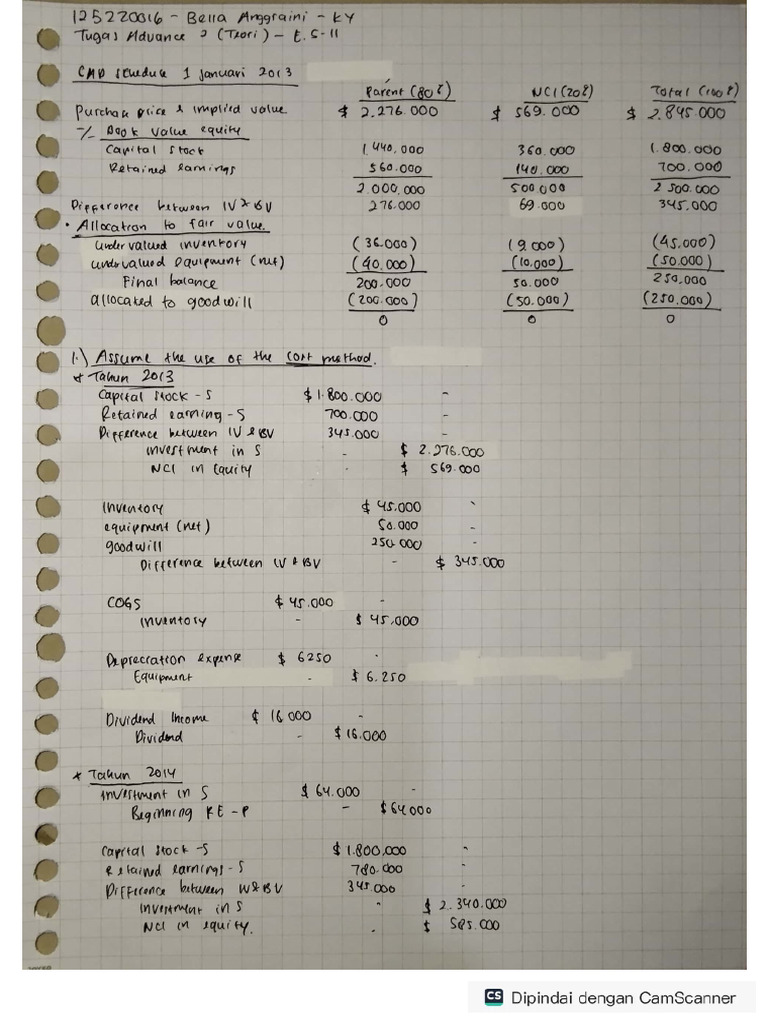 125220016 - Bella Anggraini - KY
Tugas Advance 2 (Teori) - E.5-11
CAD Schedule 1 Januari 2013
Parent (80%) NCI (20%) Total (100%)
Purchase price & implied value $ 2.276.000 $ 569.000 $ 2.845.000
-/- Book value equity
Capital stock 1.440.000 360.000 1.800.000
Retained earnings 560.000 140.000 700.000
2.000.000 500.000 2.500.000
Difference between IV & BV 276.000 69.000 345.000
• Allocation to fair value.
undervalued inventory (36.000) (9.000) (45.000)
undervalued equipment (net) (40.000) (10.000) (50.000)
Final balance 200.000 50.000 250.000
allocated to goodwill (200.000) (50.000) (250.000)
0 0 0
1.) Assume the use of the cost method.
* Tahun 2013
Capital stock - S $ 1.800.000 -
Retained earning - S 700.000 -
Difference between IV & BV 345.000 -
investment in S - $ 2.276.000
NCI in Equity - $ 569.000
Inventory $ 45.000 -
equipment (net) 50.000 -
goodwill 250.000 -
Difference between IV & BV - $ 345.000
COGS $ 45.000 -
inventory - $ 45.000
Depreciation expense $ 6250 -
Equipment - $ 6.250
Dividend Income $ 16 000 -
Dividend - $ 16.000
* Tahun 2014
investment in S $ 64.000 -
Beginning RE - P - $ 64000
Capital stock - S $ 1.800.000 -
Retained earnings - S 780.000 -
Difference between IV & BV 345.000 -
investment in S - $ 2.340.000
NCI in equity. - $ 585.000
CS Dipindai dengan CamScanner